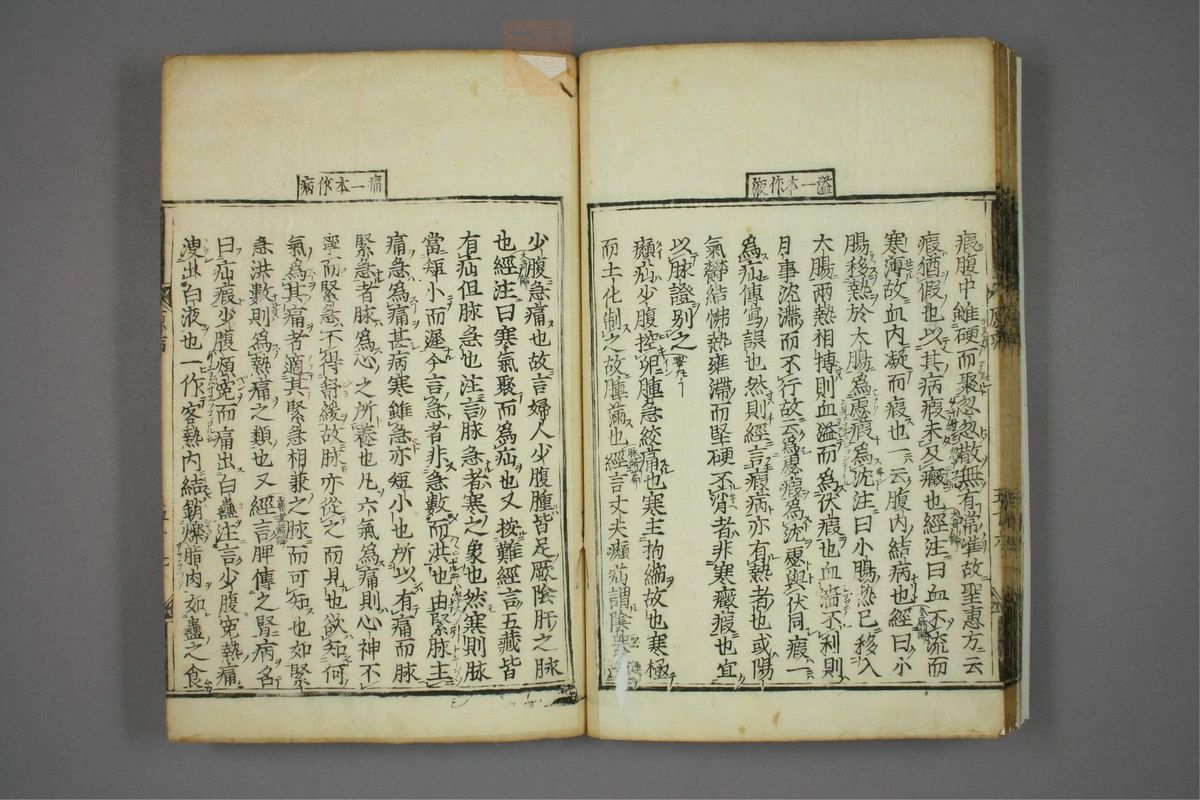 溢一本作液
瘕腹中雖硬而聚忽散無有常準故聖惠方云
瘕猶假也以其病瘕未及癥也經注曰血不流而
寒薄故血内凝而瘕也一云腹内結病也經曰小
腸移熱於大腸爲虙瘕爲沈注曰小腸熱已移入
大腸兩熱相搏則血溢而爲伏瘕也血濇不利則
月事沈滯而不行故云爲虙瘕爲沈虙與伏同瘕一
爲疝傳寫誤也然則經言瘕病亦有熱者也或陽
氣鬱結怫熱壅滯而堅硬不消者非寒癥瘕也宜
以脉證別之
癩疝少腹控卵腫急絞痛也寒主拘縮故也寒極
而土化制之故腫滿也經言丈夫癩疝謂陰
痛一本作病
少腹急痛也故言婦人少腹腫皆足厥陰肝之脉
也經注曰寒氣聚而爲疝也又按難經言五藏皆
有疝但脉急也注言脉急者寒之象也然寒則脉
當短小而遲今言急者非急數而洪也由緊脉主
痛急爲痛甚病寒雖急亦短小也所以有痛而脉
緊急者脉爲心之所養也凡六氣爲痛則心神不
寧而緊急不得舒緩故脉亦從之而見也欲知何
氣爲其痛者適其緊急相兼之脉而可知也如緊
急洪數則爲熱痛之類也又經言脾傳之腎病名
曰疝瘕少腹煩寃而痛出白蠱注言少腹寃熱痛
溲出白液也一作客熱内結銷爍脂肉如蠱之食